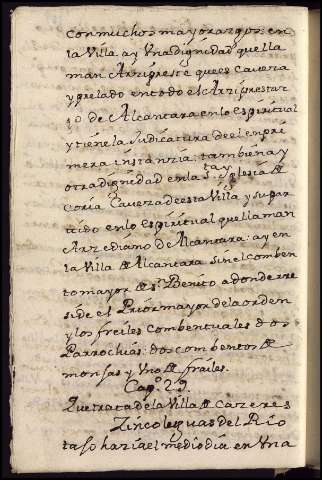 con muchos mayorazgos: en
la Villa ay Una Dignidad que lla
man Arzipreste que es caveza
y prelado en todo el Arziprestaz
go de Alcantara en lo espiritual
y tiene la Judicatura de el en pri
mera instanzia: tambien ay
otra dignidad en la S.ta Yglesia de
Coria Caveza de esta Villa y su par
tido en lo Espiritual que llaman
Arzediano de Alcantara: ay en
la Villa de Alcantara sin el comben
to mayor de S.n Benito a donde rre
side el Prior mayor de la orden
y los freiles combentuales dos
Parrochias: dos combentos de
monjas y Uno de frailes.
Cap.o 29.
Que trata de la Villa de Cazeres
Zinco leguas del Rio
tajo hazia el medio dia en Una